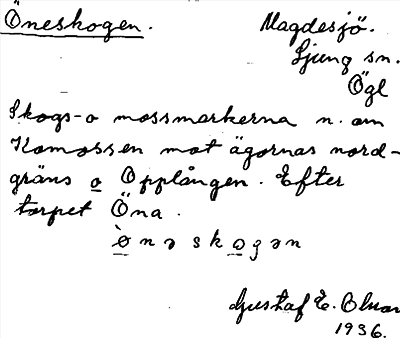 Öneskogen.
Magdesjö.
Ljung sn.
Ögl
Skogs- o mossmarkerna n. om
Komossen mot ägornas nord-
gräns o Opplången. Efter
torpet Öna.
ø̀nəskogən
Gustaf E.
1936.